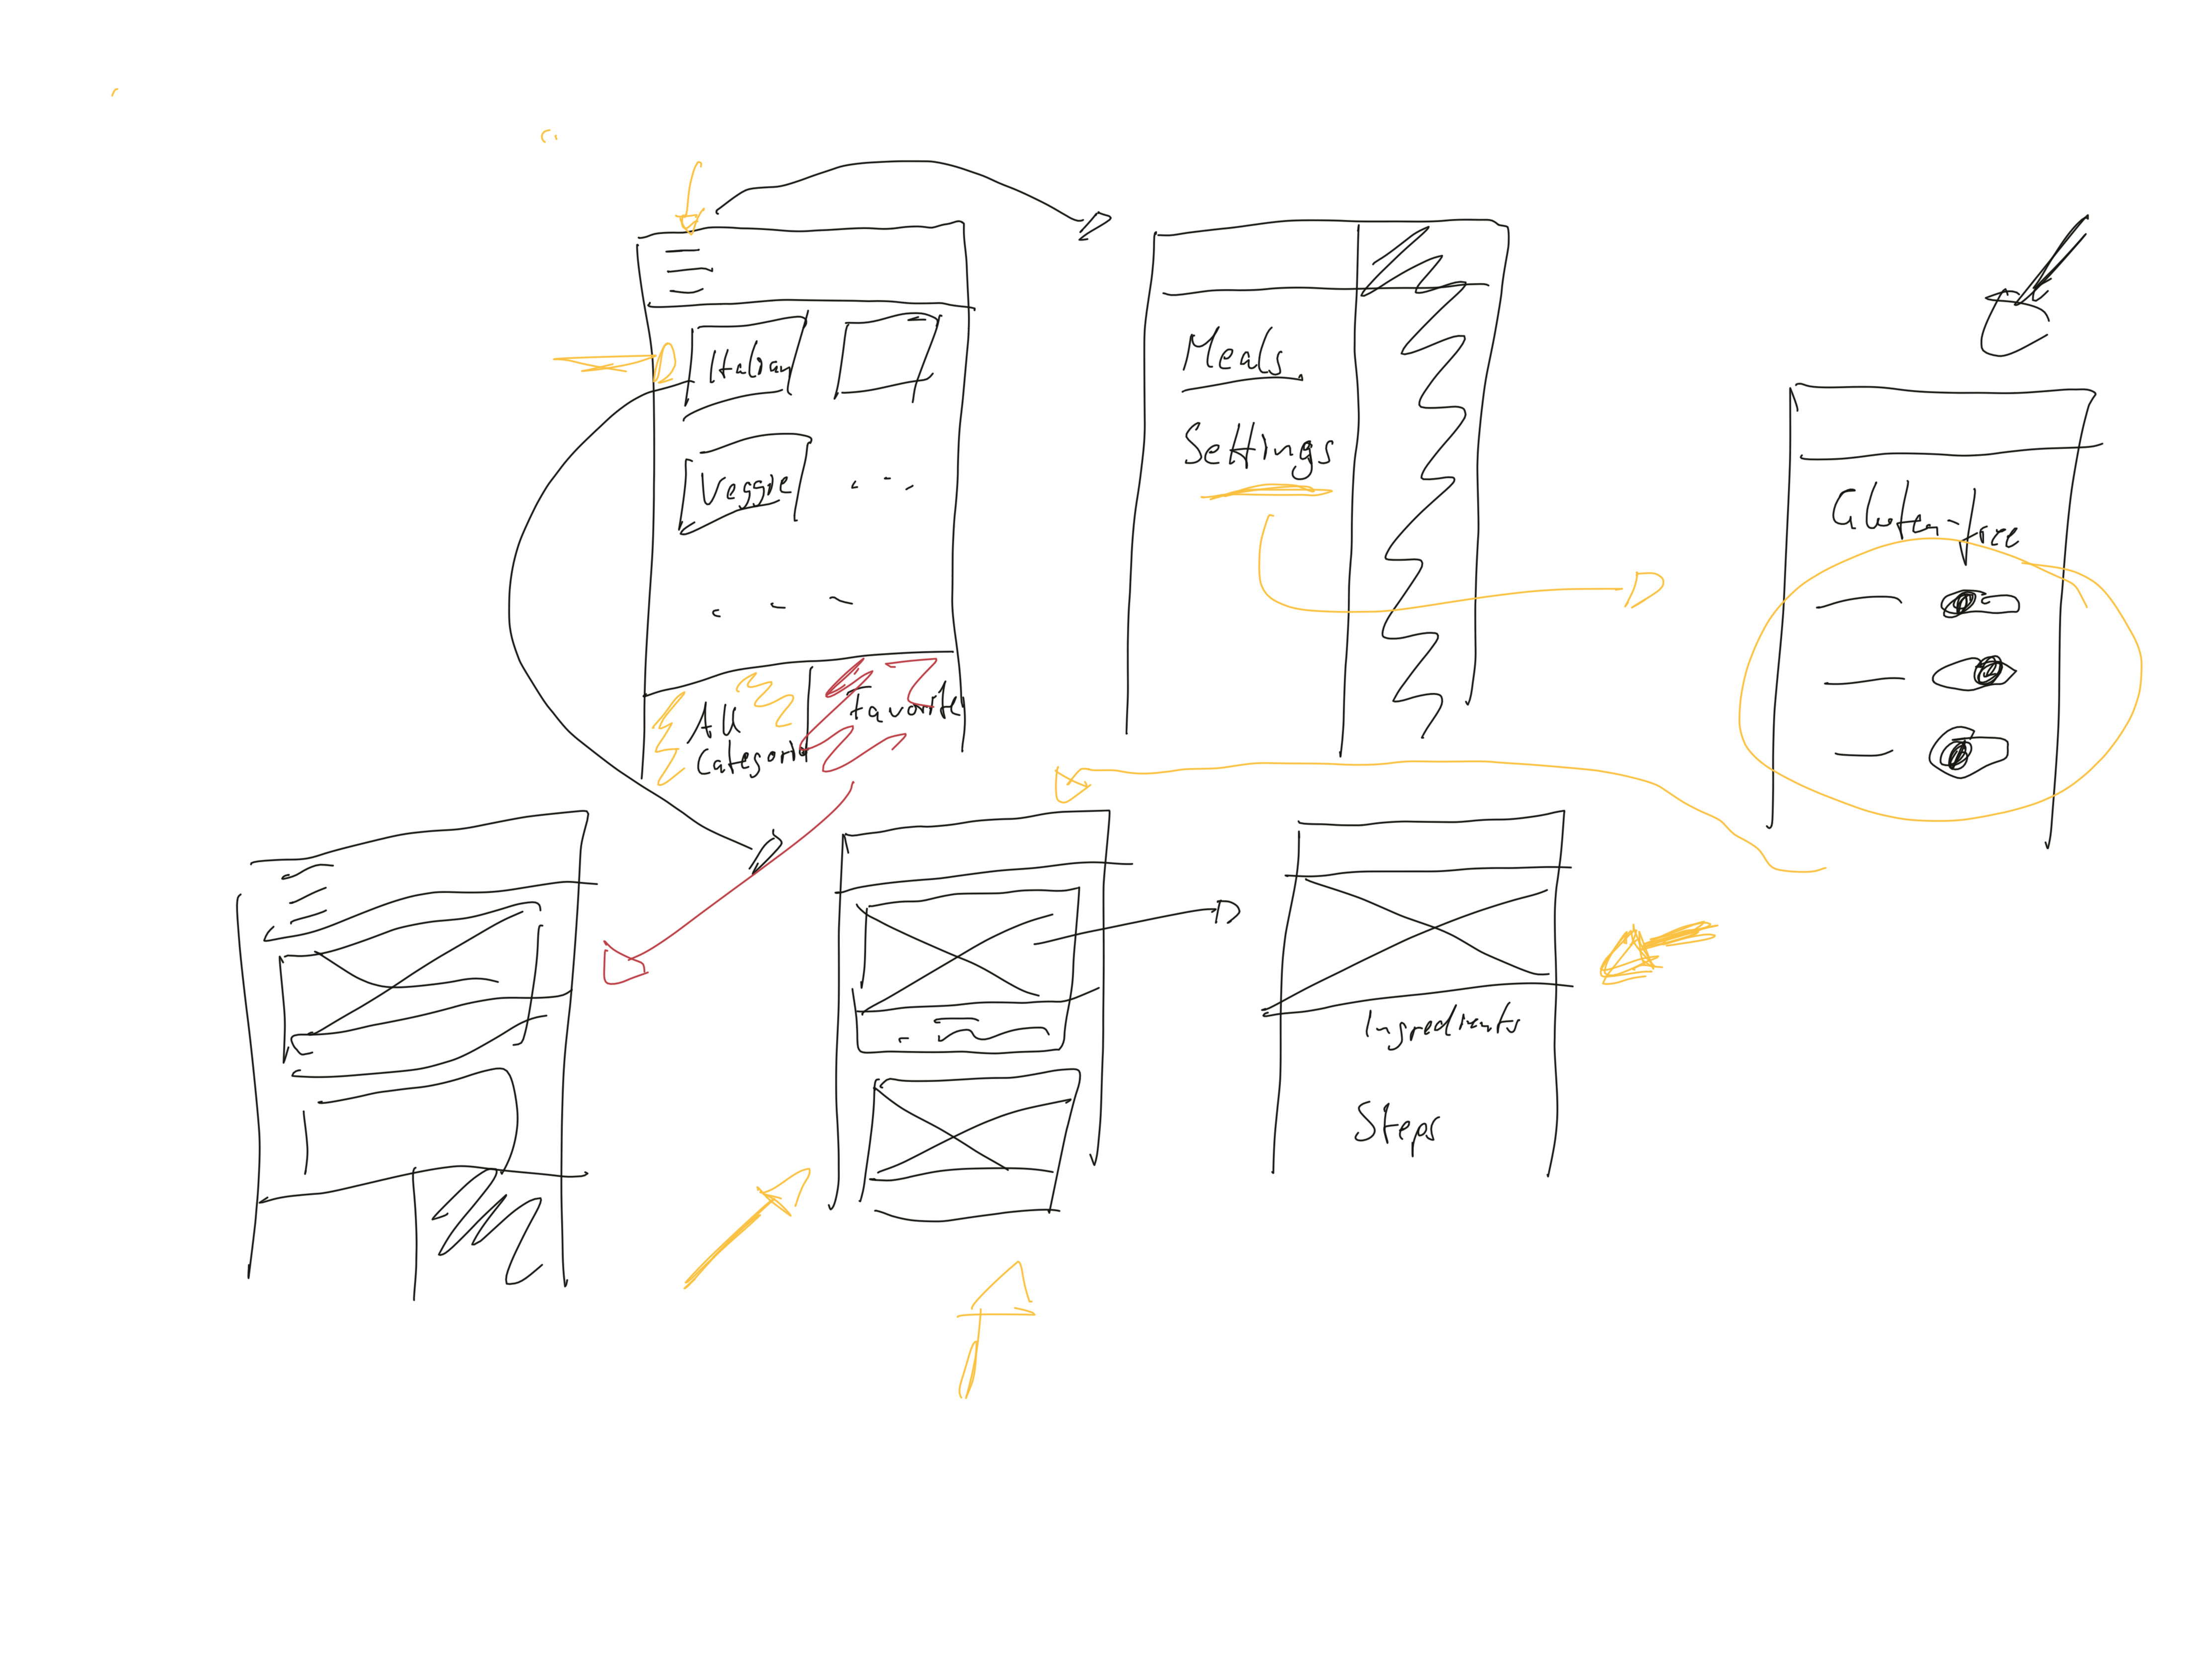 Italian
Veggie
All
Categorie
Favorite
Meals
Settings
Gluten-free
Ingredients
Steps